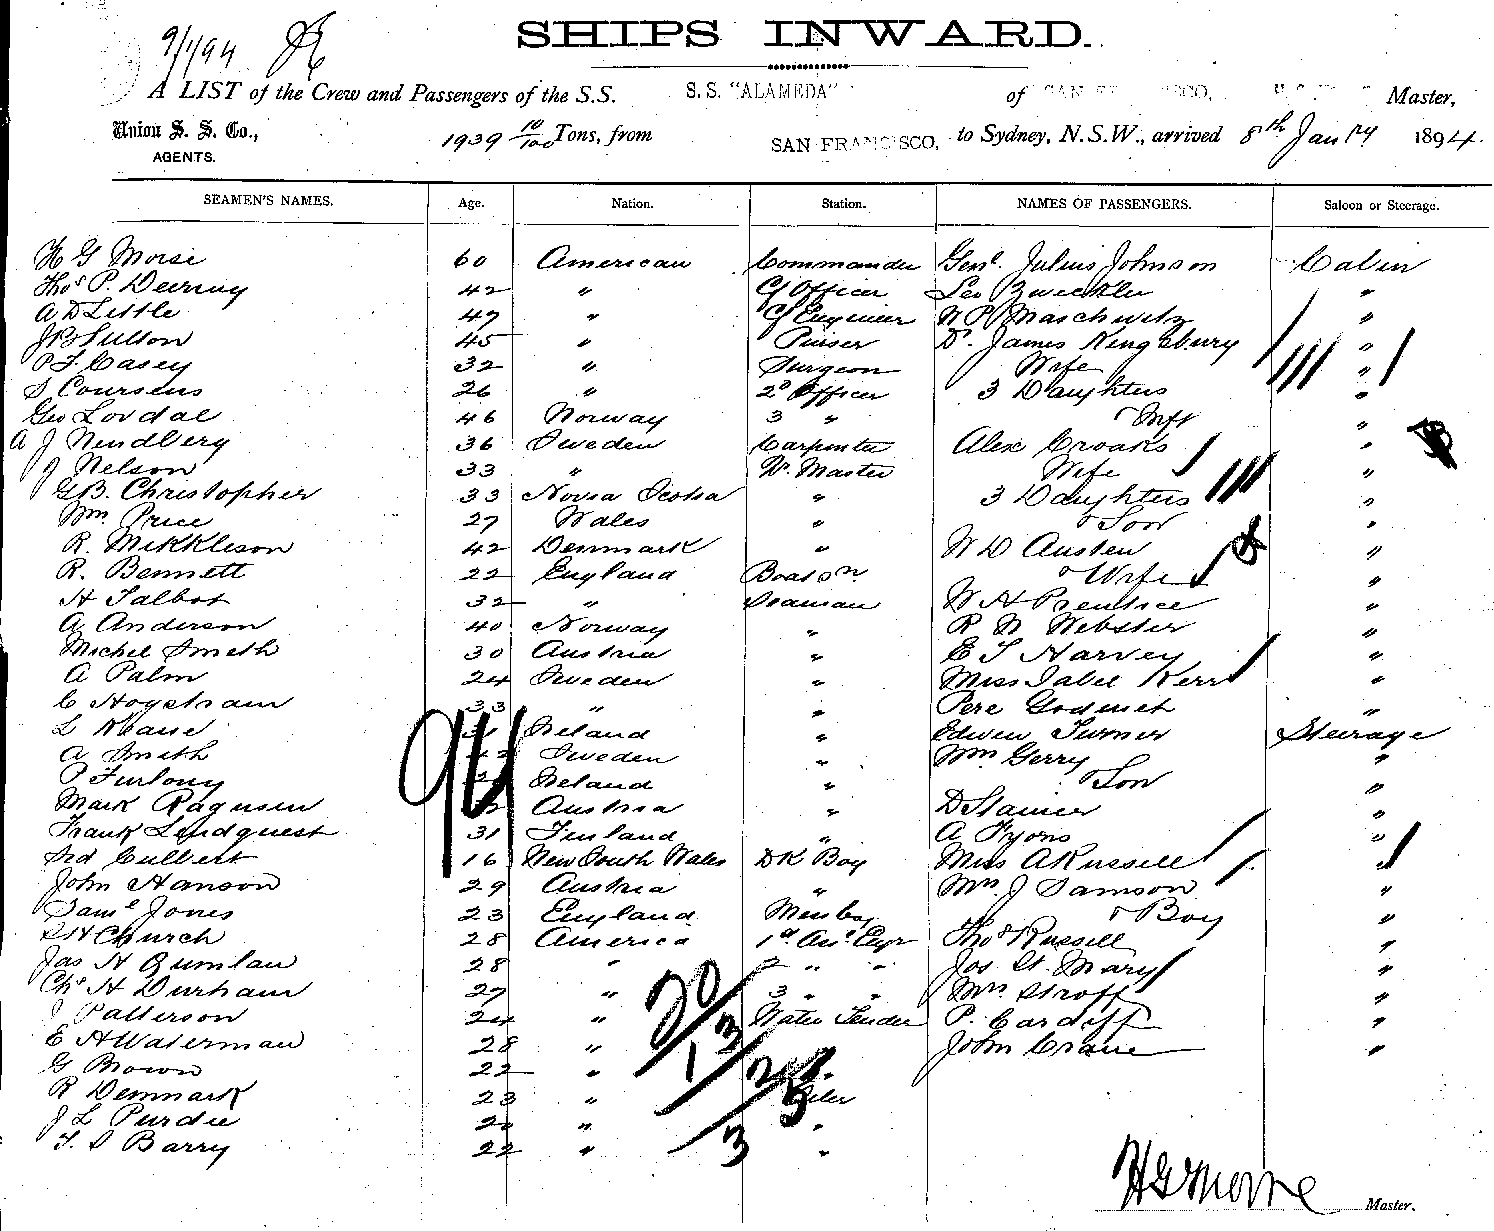 9/1/94
SHIPS INWARD.
A LIST of the Crew and Passengers of the S.S. S.S. "ALAMEDA" of SAN FRANCISCO, Master,
Union S. S. Co., 1939 10/100 Tons, from SAN FRANCISCO, to Sydney, N.S.W., arrived 8th Jany 1894.
AGENTS.
SEAMEN'S NAMES. Age. Nation. Station. NAMES OF PASSENGERS. Saloon or Steerage.
H G Morse 60 American Commander Genl. Julius Johnson Cabin
Thos P. Deering 42 " Cf Officer Leo Zweckler "
A D Little 47 " Cf Engineer W P Maschwitz "
J B Sutton 45 " Purser Dr. James Kingsbury "
P F Casey 32 " Surgeon Wife "
S Coursens 26 " 2d Officer 3 Daughters "
Geo Lovdal 46 Norway 3 " & Inft "
A J Nendbery 36 Sweden Carpenter Alex Croaks "
J Nelson 33 " Qr. Master Wife "
G B. Christopher 33 Nova Scotia " 3 Daughters "
Wm Price 27 Wales " & Son "
R. Mikkleson 42 Denmark " W D Austen "
R. Bennett 22 England Boatsn & Wife "
H Talbot 32 " Seaman W H Prentice "
A Anderson 40 Norway " R N Webster "
Michel Smith 30 Austria " E T Harvey "
A Palm 24 Sweden " Miss Isabel Kerr "
C Hogstram 33 " " Pere Godinet "
L Keane 31 Ireland " Edwin Turner Steerage
A Smith 42 Sweden " Wm Gerry "
P Furlong Ireland " & Son "
Mark Ragusin Austria " D Stainer
Frank Lindquest 31 Finland " A Tyons "
Fred Culbert 16 New South Wales DK Boy Miss A Russell "
John Hanson 29 Austria " Mrs. J Samson "
Saml Jones 23 England Messboy & Boy "
S H Church 28 America 1st Asst Engr Thos Russell "
Jas H Quinlan 28 " 2 " " Jos St. Mary "
Chs H Durham 27 " 3 " " Mrs Stroff "
J Patterson 24 " Water Tender P. Cardiff "
E H Waterman 28 " " John Crane "
G Brown 22 " "
R Denmark 23 " Oiler
J L Purdie " "
T. S Barry 22 " "
94
20
13
2
5
3
H G Morse Master.